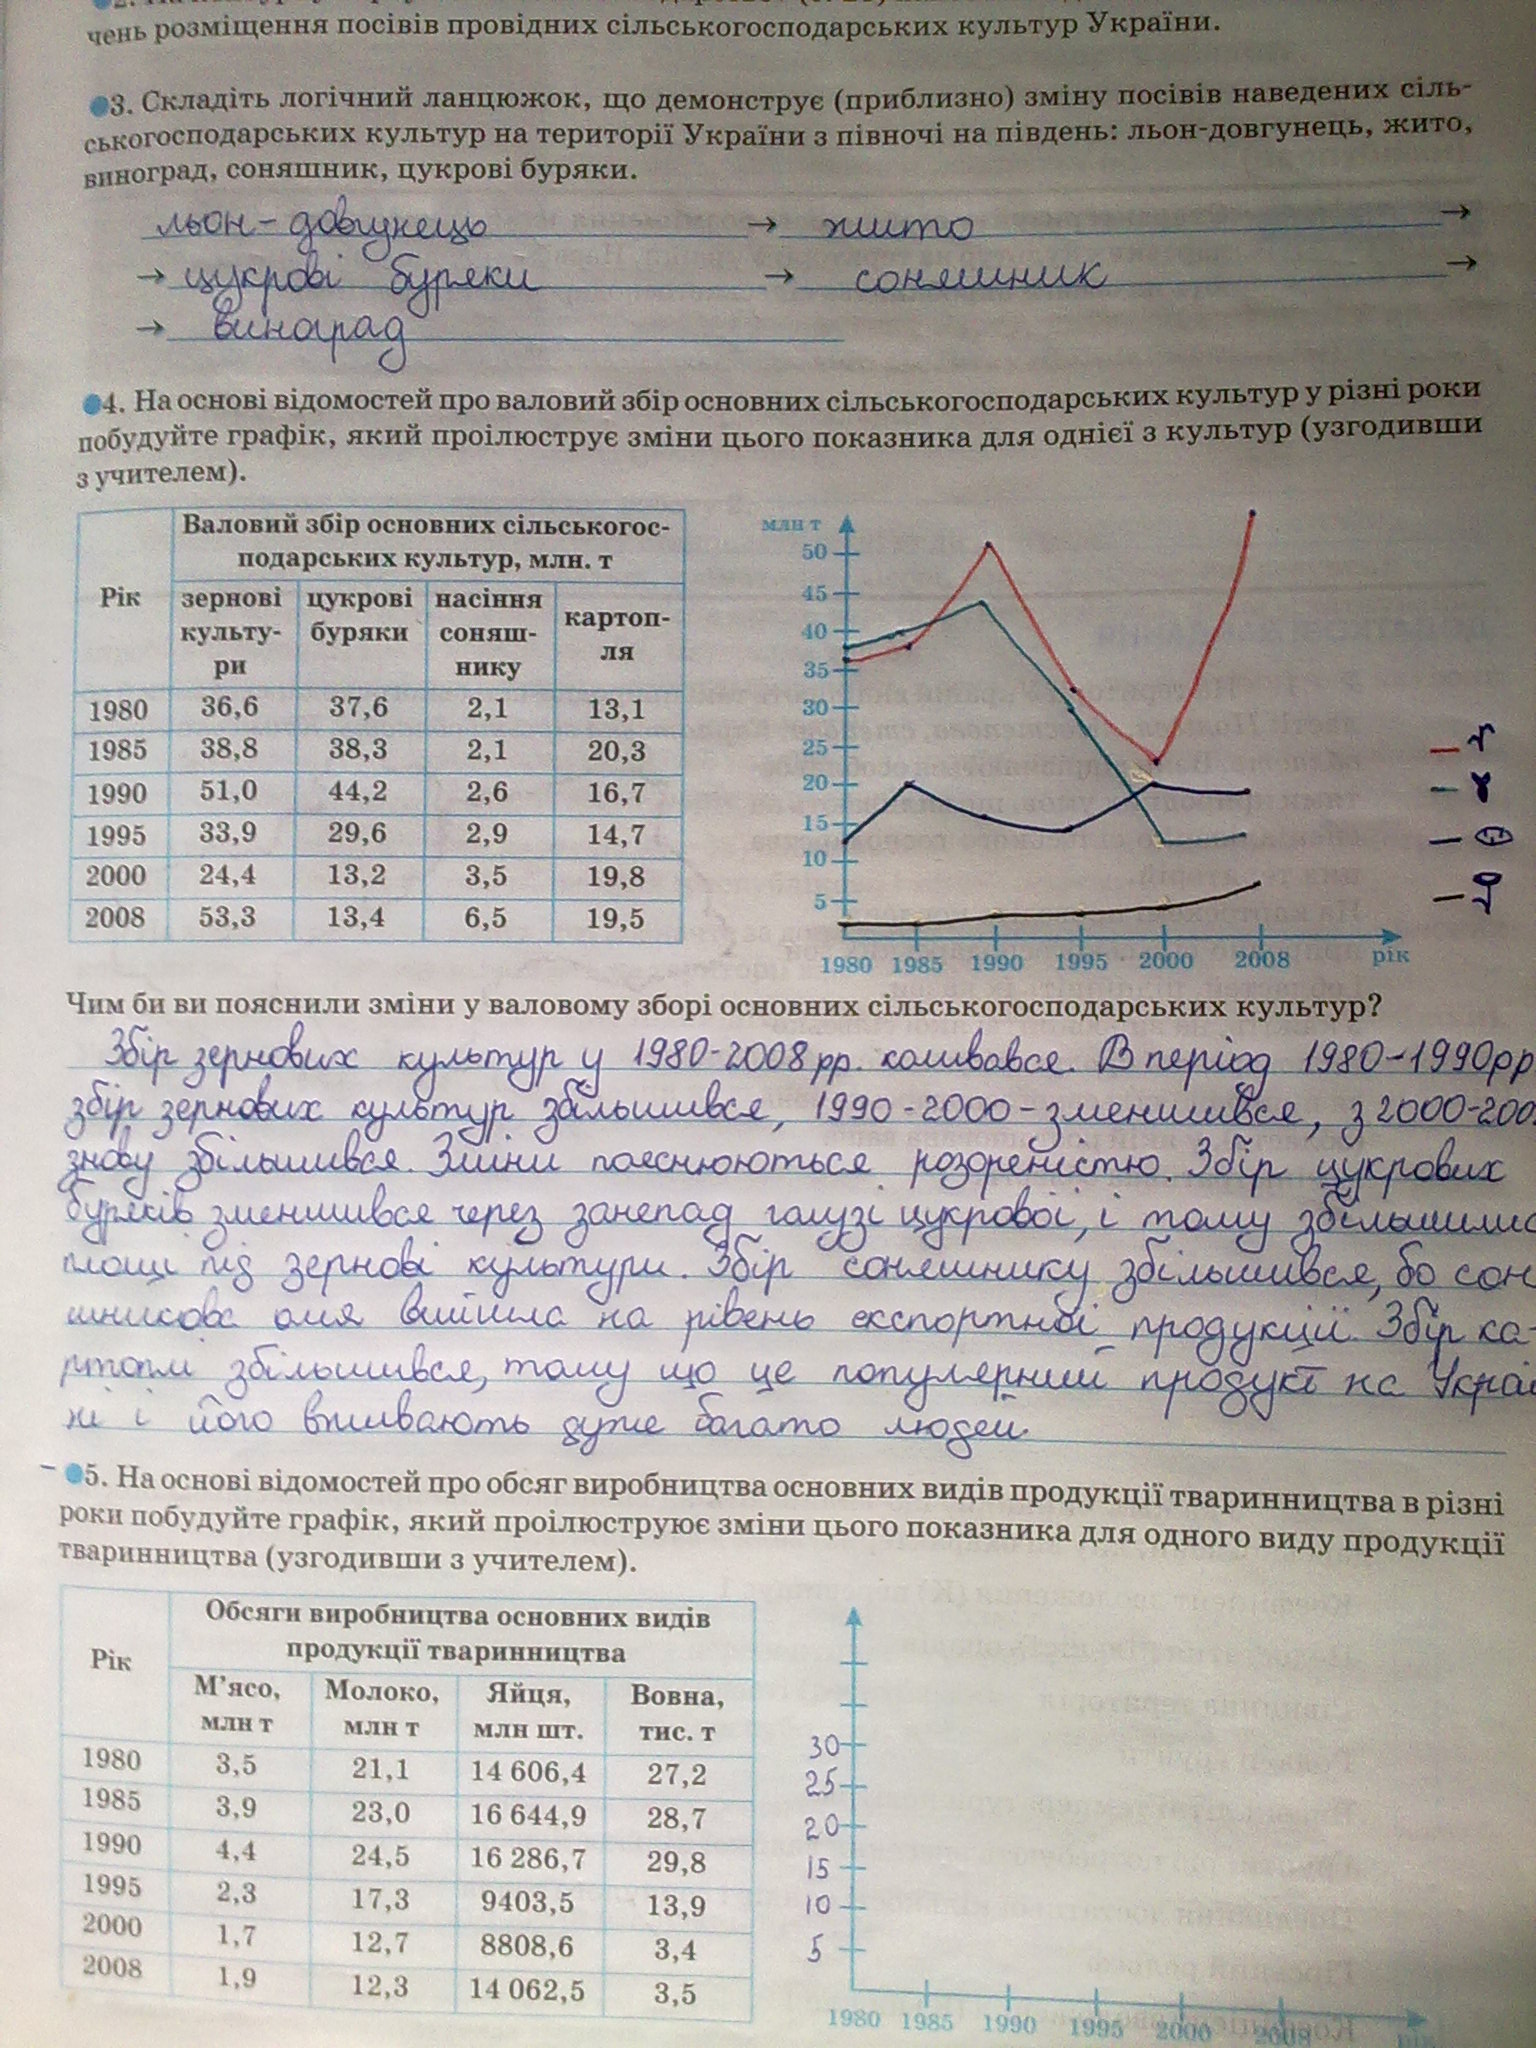 чень розміщення посівів провідних сільськогосподарських культур України.
3. Складіть логічний ланцюжок, що демонструє (приблизно) зміну посівів наведених сіль-
ськогосподарських культур на території України з півночі на південь: льон-довгунець, жито,
виноград, соняшник, цукрові буряки.
льон-довгунець → жито →
→ цукрові буряки → соняшник →
→ виноград
4. На основі відомостей про валовий збір основних сільськогосподарських культур у різні роки
побудуйте графік, який проілюструє зміни цього показника для однієї з культур (узгодивши
з учителем).
Рік
Валовий збір основних сільськогос-
подарських культур, млн. т
зернові культу- ри
цукрові буряки
насіння соняш- нику
картоп- ля
1980 36,6 37,6 2,1 13,1
1985 38,8 38,3 2,1 20,3
1990 51,0 44,2 2,6 16,7
1995 33,9 29,6 2,9 14,7
2000 24,4 13,2 3,5 19,8
2008 53,3 13,4 6,5 19,5
млн т
50
45
40
35
30
25
20
15
10
5
1980 1985 1990 1995 2000 2008 рік
Чим би ви пояснили зміни у валовому зборі основних сільськогосподарських культур?
Збір зернових культур у 1980-2008 рр. коливався. В період 1980-1990 рр
збір зернових культур збільшився, 1990-2000 - зменшився, з 2000-200
знову збільшився. Зміни пояснюються розореністю. Збір цукрових
буряків зменшився через занепад галузі цукрової, і тому збільшились
площі під зернові культури. Збір соняшнику збільшився, бо сон
шникова олія вийшла на рівень експортної продукції. Збір ка-
ртоплі збільшився, тому що це популярний продукт на Украї
ні і його вживають дуже багато людей.
5. На основі відомостей про обсяг виробництва основних видів продукції тваринництва в різні
роки побудуйте графік, який проілюструює зміни цього показника для одного виду продукції
тваринництва (узгодивши з учителем).
Рік
Обсяги виробництва основних видів
продукції тваринництва
М'ясо, млн т
Молоко, млн т
Яйця, млн шт.
Вовна, тис. т
1980 3,5 21,1 14 606,4 27,2
1985 3,9 23,0 16 644,9 28,7
1990 4,4 24,5 16 286,7 29,8
1995 2,3 17,3 9403,5 13,9
2000 1,7 12,7 8808,6 3,4
2008 1,9 12,3 14 062,5 3,5
30
25
20
15
10
5
1980 1985 1990 1995 2000 2008